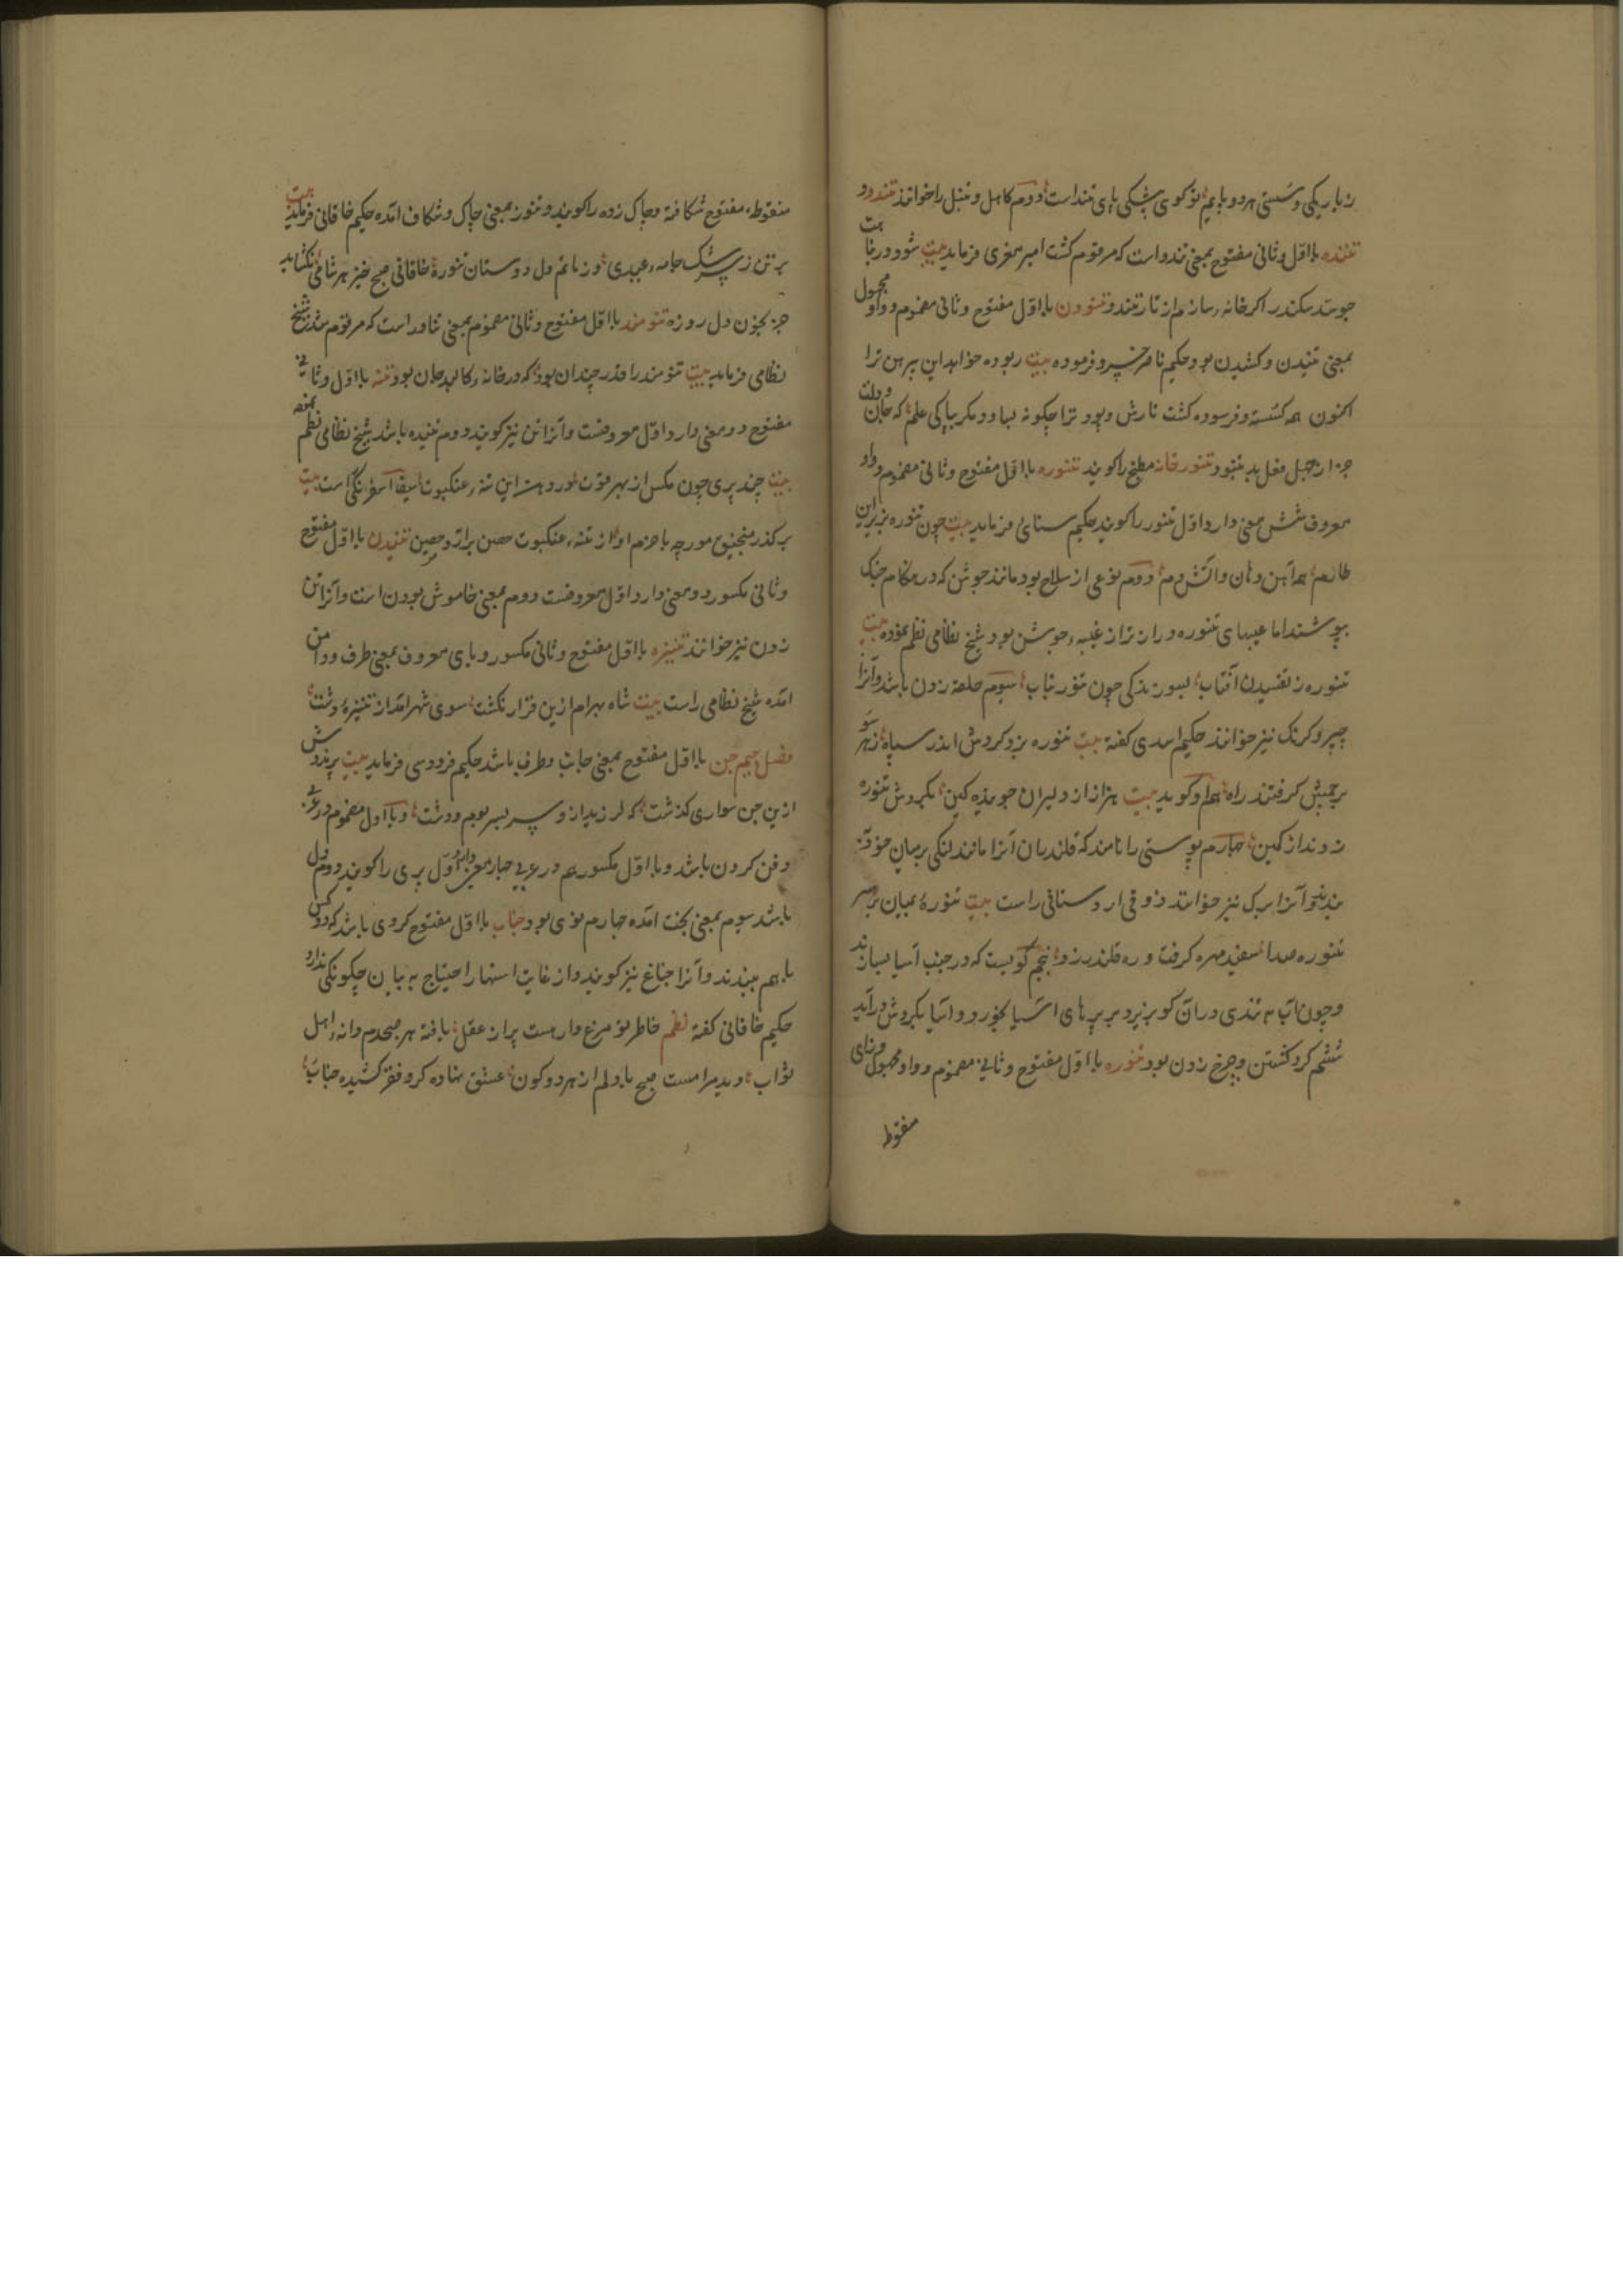 ز باریکی و سستی هر دو پایم تو گوی شکی پای تند است دوم کاهل و تنبل را خوانند تندو و
تننده با اول و ثانی مفتوح بمعنی تندو است که مرقوم گشت امیر معزی فرماید بیت شود در پناهت
چو سد سکندر اگر خانه سازم از تار تندو تنودن با اول مفتوح و ثانی مضموم و واو مجهول
بمعنی تنیدن و کشیدن بود حکیم ناصر خسرو فرموده بیت ربوده خواهد این پیرهن ترا
اکنون همه گسسته و فرسوده گشت تارش و پود ترا چگونه بساود مگر بپاکی علم که جان و دلت
جز از جهل فعل بد بنبود تنورخانه مطبخ را گویند تنوره با اول مفتوح و ثانی مضموم و واو
معروف شش معنی دارد اول تنور را گویند حکیم سنائی فرماید بیت چون تنوره بزیر این
طارم همه آهن دهان و آتش دم دوم نوعی از سلاح بود مانند جوشن که در هنگام جنگ
پوشند اما غیبهای تنوره درازتر از غیبه جوشن بود شیخ نظامی نظم نموده بیت
تنوره ز تفسیدن آفتاب بسوزندگی چون تنور بتاب سوم حلقه زدن باشد و آنرا
چپر و کرنک نیز خوانند حکیم اسدی گفته بیت تنوره بزد گردش اندر سپاه ز هر سو
بر جمبش گرفتند راه هم او گوید بیت هزاران دلیران جوینده کین بگردش تنوره
زدند از کمین چهارم پوستی را نامند که قلندران آنرا مانند لنگی بر میان خود
بندند و آنرا نیز خوانند ذوقی اردستانی راست بیت تنوره بمیان بر
تنوره صدا سفید مهره گرفت و ره قلندر زد پنجم گویست که در جنب آسیا بسازند
و چون آب به تندی در آن گو بریزد بر پرهای آسیا بخورد و آسیا بگردش درآید
ششم گرد گشتن و چرخ زدن بود تنوزه با اول مفتوح و ثانی مضموم و واو مجهول و زای
منقوط
منقوط مفتوح شکافته و چاک زده را گویند و تنوز بمعنی چاک و شکاف آمده حکیم خاقانی فرماید بیت
بر تن ز سرشک جامه عیدی در ماتم دل دوستان تنوزه خاقانی صبح خیز هر شامی نگشاید
جز بخون دل روزه تنومند با اول مفتوح و ثانی مضموم بمعنی تناور است که مرقوم شد شیخ
نظامی فرماید بیت تنومند را قدر چندان بود که در خانه کالبد جان بود تنه با اول و ثانی
مفتوح دو معنی دارد اول معروفست و آنرا تن نیز گویند دوم تنیده باشد شیخ نظامی نظم نموده
بیت چند پری چون مگس از بهر قوت در دهن این تنه عنکبوت سیف اسفرنگی راست بیت
بر گذر منجنیق مورچه با حزم او از تنه عنکبوت حصن برآرد حصین تنیدن با اول مفتوح
و ثانی مکسور دو معنی دارد اول معروفست دوم بمعنی خاموش بودن است و آنرا تن
زدن نیز خوانند تنیزه با اول مفتوح و ثانی مکسور و یای معروف بمعنی طرف و دامن
آمده شیخ نظامی راست بیت شاه بهرام ازین قرار نگشت سوی شهر آمد از تنیزه دشت
فصل جیم جن با اول مفتوح بمعنی جانب و طرف باشد حکیم فردوسی فرماید بیت پرندوش
ازین جن سواری گذشت که لرزید ازو سر بسر بوم و دشت و با اول مضموم در عربی
دفن کردن باشد و با اول مکسور هم در عربی چهار معنی دارد اول پری را گویند دوم دل
باشد سوم بمعنی بخت آمده چهارم نوی بود جناب با اول مفتوح گروی باشد که دو کس
با هم ببندند و آنرا جناغ نیز گویند و از غایت اشتهار احتیاج به بیان چگونگی ندارد
حکیم خاقانی گفته نظم خاطر تو مرغ وار هست پران عقل یافته هر صبحدم دانه اهل
ثواب دید مرا مست صبح با دلم از هر دو کون عشق نهاده گرو فقر کشیده جناب